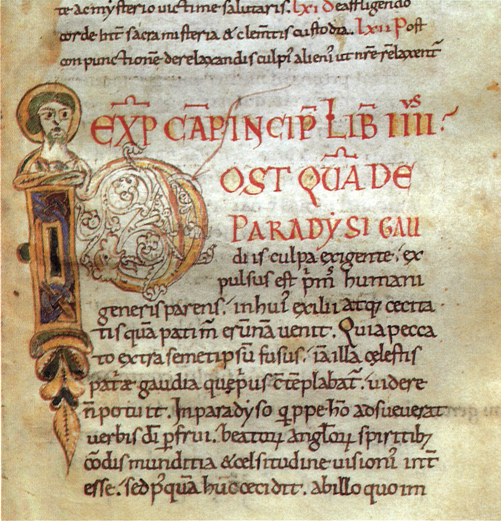 te ac mysterio uictime salutaris. lxi De affligendo
corde int̄ sacra misteria & clem̄tis custodia. lxii Post
conpunctionē de relaxandis culpiſ alieniſ ut nr̄e relaxent̄
EXP̄ CAP̄ INCIP̄ LIB̄ IIII.
POST QUĀ DE
PARADẎSI GAU
diis culpa exigente. ex
pulsus est p̄m humani
generis parens. in hui᾽ exilii atq; cecita
tis quā patim̄ erūnā uenit. Quia pecca
to extra semetipsū fusus. iā illa celestis
patⁱæ gaudia que priꝰ cōtēplabat̄. uidere
n̄ potuit. In paradyso q̇ppe hō adsueuerat
uerbis dī p̄frui. beatorꝝ anglorꝝ spiritibꝫ
cordis munditia & celsitudine uisioniſ int̄
esse. sed pꝰquā huc cecidit. ab illo quo im